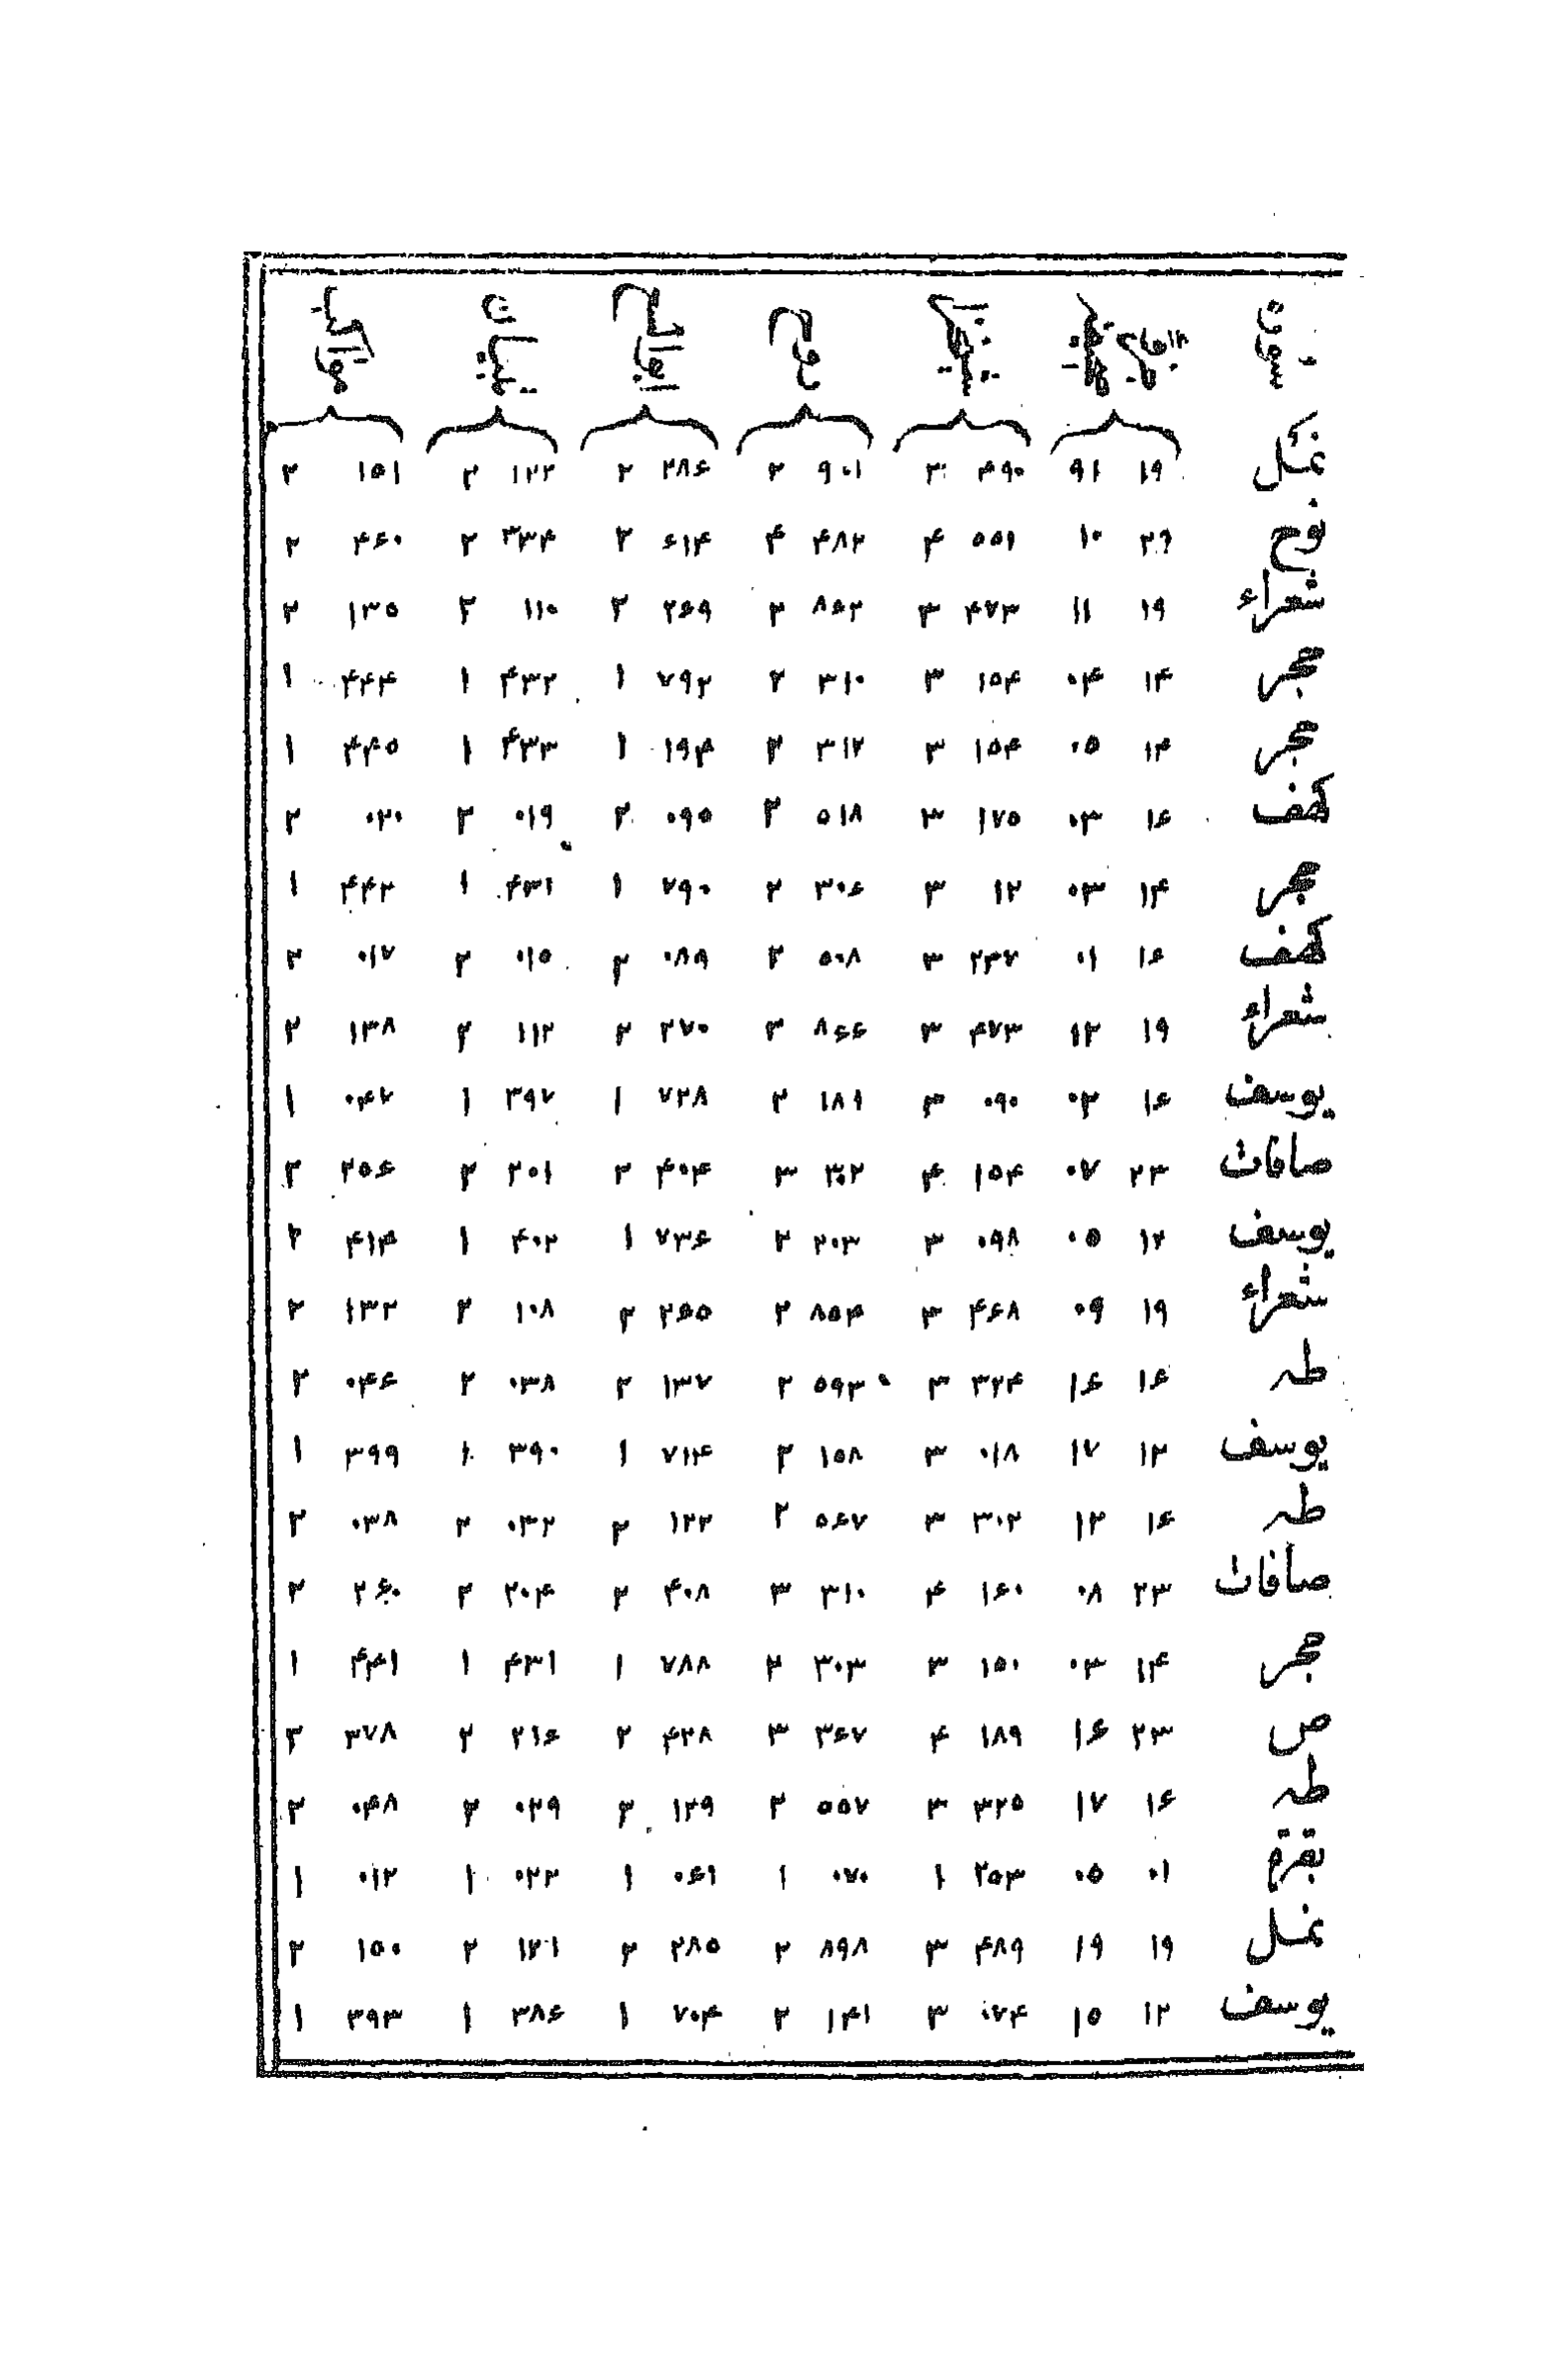 سورة
نمل ۱۹ ۹۱ ۴۹۰ ۳ ۹۰۱ ۲ ۲۸۶ ۲ ۱۲۲ ۲ ۱۵۱ ۲
نوح ۲۹ ۱۰ ۵۵۱ ۴ ۴۸۲ ۴ ۶۱۴ ۲ ۳۳۴ ۲ ۴۶۰ ۲
شعراء ۱۹ ۱۱ ۴۷۳ ۳ ۸۶۲ ۲ ۲۶۹ ۲ ۱۱۰ ۲ ۱۳۵ ۲
حجر ۱۴ ۰۴ ۱۵۴ ۳ ۳۱۰ ۲ ۷۹۲ ۱ ۴۳۲ ۱ ۴۴۴ ۱
حجر ۱۴ ۰۵ ۱۵۴ ۳ ۳۱۷ ۲ ۱۹۴ ۱ ۴۳۳ ۱ ۴۴۵ ۱
کهف ۱۶ ۰۳ ۱۷۵ ۳ ۵۱۸ ۲ ۰۹۵ ۲ ۰۱۹ ۲ ۰۲۰ ۲
حجر ۱۴ ۰۳ ۱۲ ۳ ۳۰۶ ۲ ۷۹۰ ۱ ۴۳۱ ۱ ۴۴۲ ۱
کهف ۱۶ ۰۱ ۲۳۷ ۳ ۵۰۸ ۲ ۰۸۹ ۲ ۰۱۵ ۲ ۰۱۷ ۲
شعراء ۱۹ ۱۲ ۴۷۳ ۳ ۸۶۶ ۲ ۲۷۰ ۲ ۱۱۲ ۲ ۱۳۸ ۲
یوسف ۱۶ ۰۳ ۰۹۰ ۳ ۱۸۹ ۲ ۷۲۸ ۱ ۳۹۷ ۱ ۰۴۷ ۱
صافات ۲۳ ۰۷ ۱۵۴ ۴ ۳۰۲ ۳ ۴۰۴ ۲ ۲۰۱ ۲ ۲۵۶ ۲
یوسف ۱۲ ۰۵ ۰۹۸ ۳ ۲۰۳ ۲ ۷۳۶ ۱ ۴۰۲ ۱ ۴۱۴ ۲
شعراء ۱۹ ۰۹ ۴۶۸ ۳ ۸۵۴ ۲ ۲۶۵ ۲ ۱۰۸ ۲ ۱۳۲ ۲
طه ۱۶ ۱۶ ۳۲۴ ۳ ۵۹۳ ۲ ۱۳۷ ۲ ۰۳۸ ۲ ۰۴۶ ۲
یوسف ۱۲ ۱۷ ۰۱۸ ۳ ۱۵۸ ۲ ۷۱۴ ۱ ۳۹۰ ۱ ۳۹۹ ۱
طه ۱۶ ۱۲ ۳۰۲ ۳ ۵۶۷ ۲ ۱۲۲ ۲ ۰۳۲ ۲ ۰۳۸ ۲
صافات ۲۳ ۰۸ ۱۶۰ ۴ ۳۱۰ ۳ ۴۰۸ ۲ ۲۰۴ ۲ ۲۶۰ ۲
حجر ۱۴ ۰۳ ۱۵۰ ۳ ۳۰۳ ۲ ۷۸۸ ۱ ۴۳۱ ۱ ۴۴۱ ۱
ص ۲۳ ۱۶ ۱۸۹ ۴ ۳۶۷ ۳ ۴۲۸ ۲ ۲۱۶ ۲ ۳۷۸ ۲
طه ۱۶ ۱۷ ۳۲۵ ۳ ۵۵۷ ۲ ۱۲۹ ۲ ۰۲۹ ۲ ۰۴۸ ۲
بقرة ۰۱ ۰۵ ۲۵۳ ۱ ۰۷۰ ۱ ۰۶۱ ۱ ۰۲۲ ۱ ۰۱۲ ۱
نمل ۱۹ ۱۹ ۴۸۹ ۳ ۸۹۸ ۲ ۲۸۵ ۲ ۱۲۱ ۲ ۱۵۰ ۲
یوسف ۱۲ ۱۵ ۰۷۴ ۳ ۱۴۱ ۲ ۷۰۴ ۱ ۳۸۶ ۱ ۳۹۳ ۱